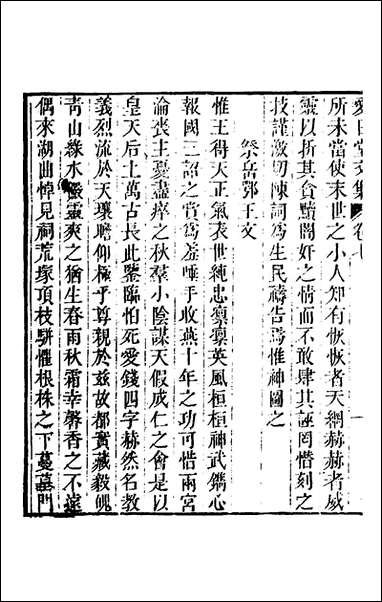 愛日堂文集 卷七
所未當使末世之小人知有恢恢者天網赫赫者威
靈以折其貪黷闇奸之情而不敢肆其誣罔僭刻之
技謹激切陳詞為生民禱告焉惟神圖之
祭岳鄂王文
惟王得天正氣表世純忠凛凛英風桓桓神武鐫心
報國三詔之賞為羞唾手收燕十年之功可惜兩宮
淪喪主憂盡瘁之秋羣小陰謀天假成仁之會是以
皇天后土萬古長此鑒臨怕死愛錢四字赫然名教
義烈流於天壤瞻仰極乎尊親於兹故都實藏毅魄
靑山綠水儼靈爽之猶生春雨秋霜幸馨香之不遠
偶來湖曲悼見祠荒塚頂枝駢懼根株之下蔓墓門